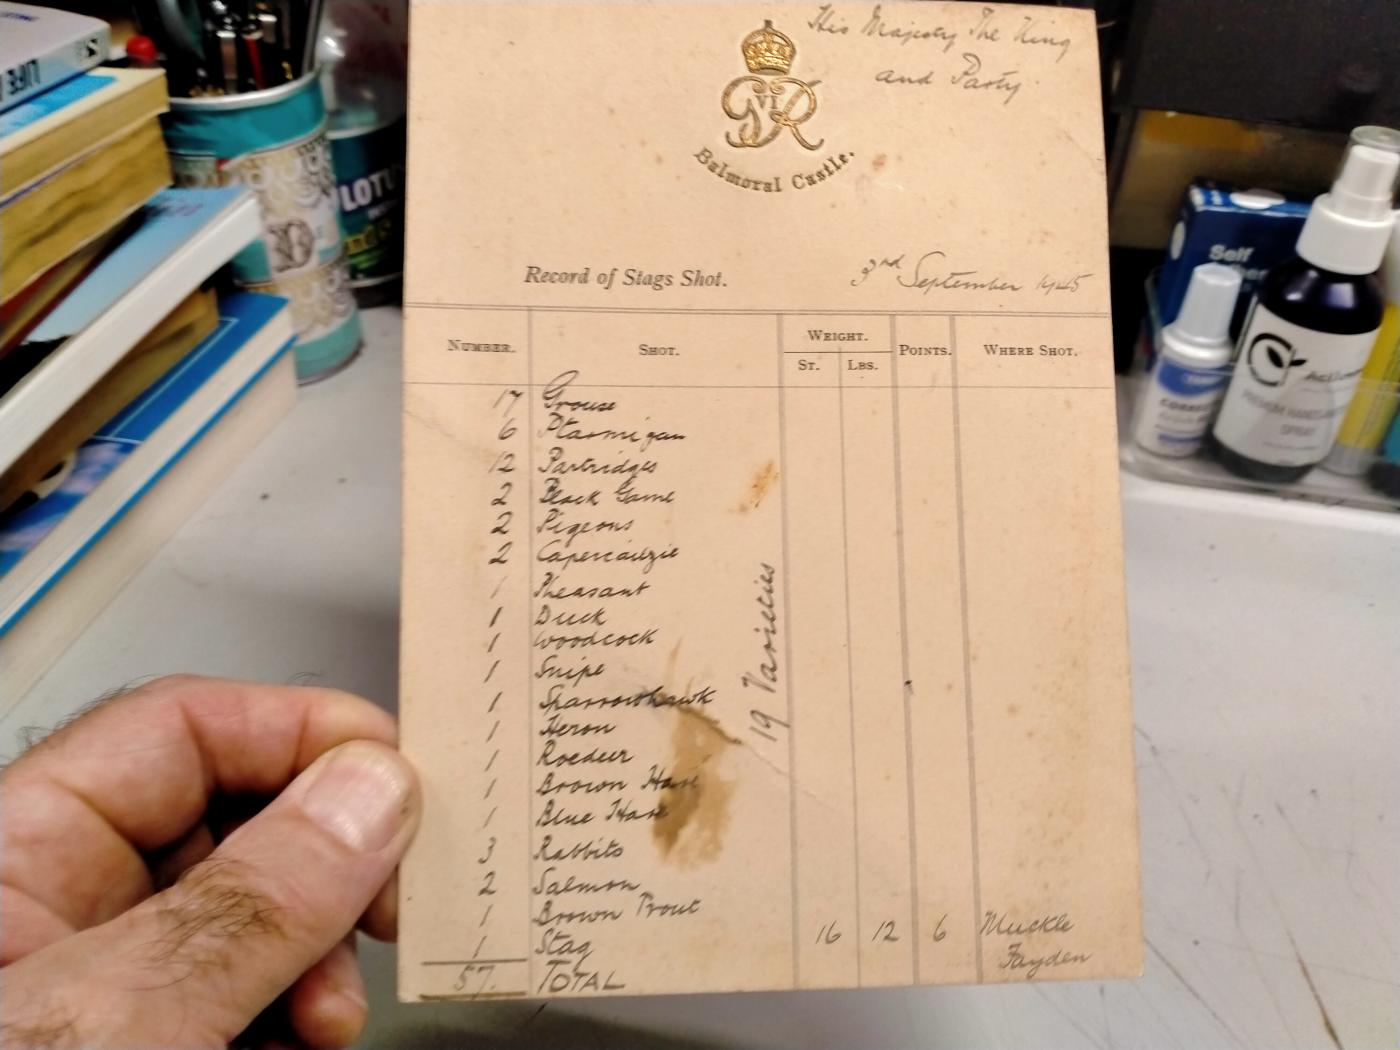 His Majesty The King
and Party.
G VI R
Balmoral Castle.
Record of Stags Shot.
3rd September 1945
NUMBER. SHOT. WEIGHT. POINTS. WHERE SHOT.
ST. LBS.
17 Grouse
6 Ptarmigan
12 Partridges
2 Black Game
2 Pigeons
2 Capercailzie
1 Pheasant
1 Duck
1 Woodcock
1 Snipe
1 Sparrowhawk
1 Heron
1 Roedeer
1 Brown Hare
1 Blue Hare
3 Rabbits
2 Salmon
1 Brown Trout
1 Stag 16 12 6 Muckle
Fayden
57. TOTAL
19 Varieties
LIFE
LOTU
Self
SPRAY